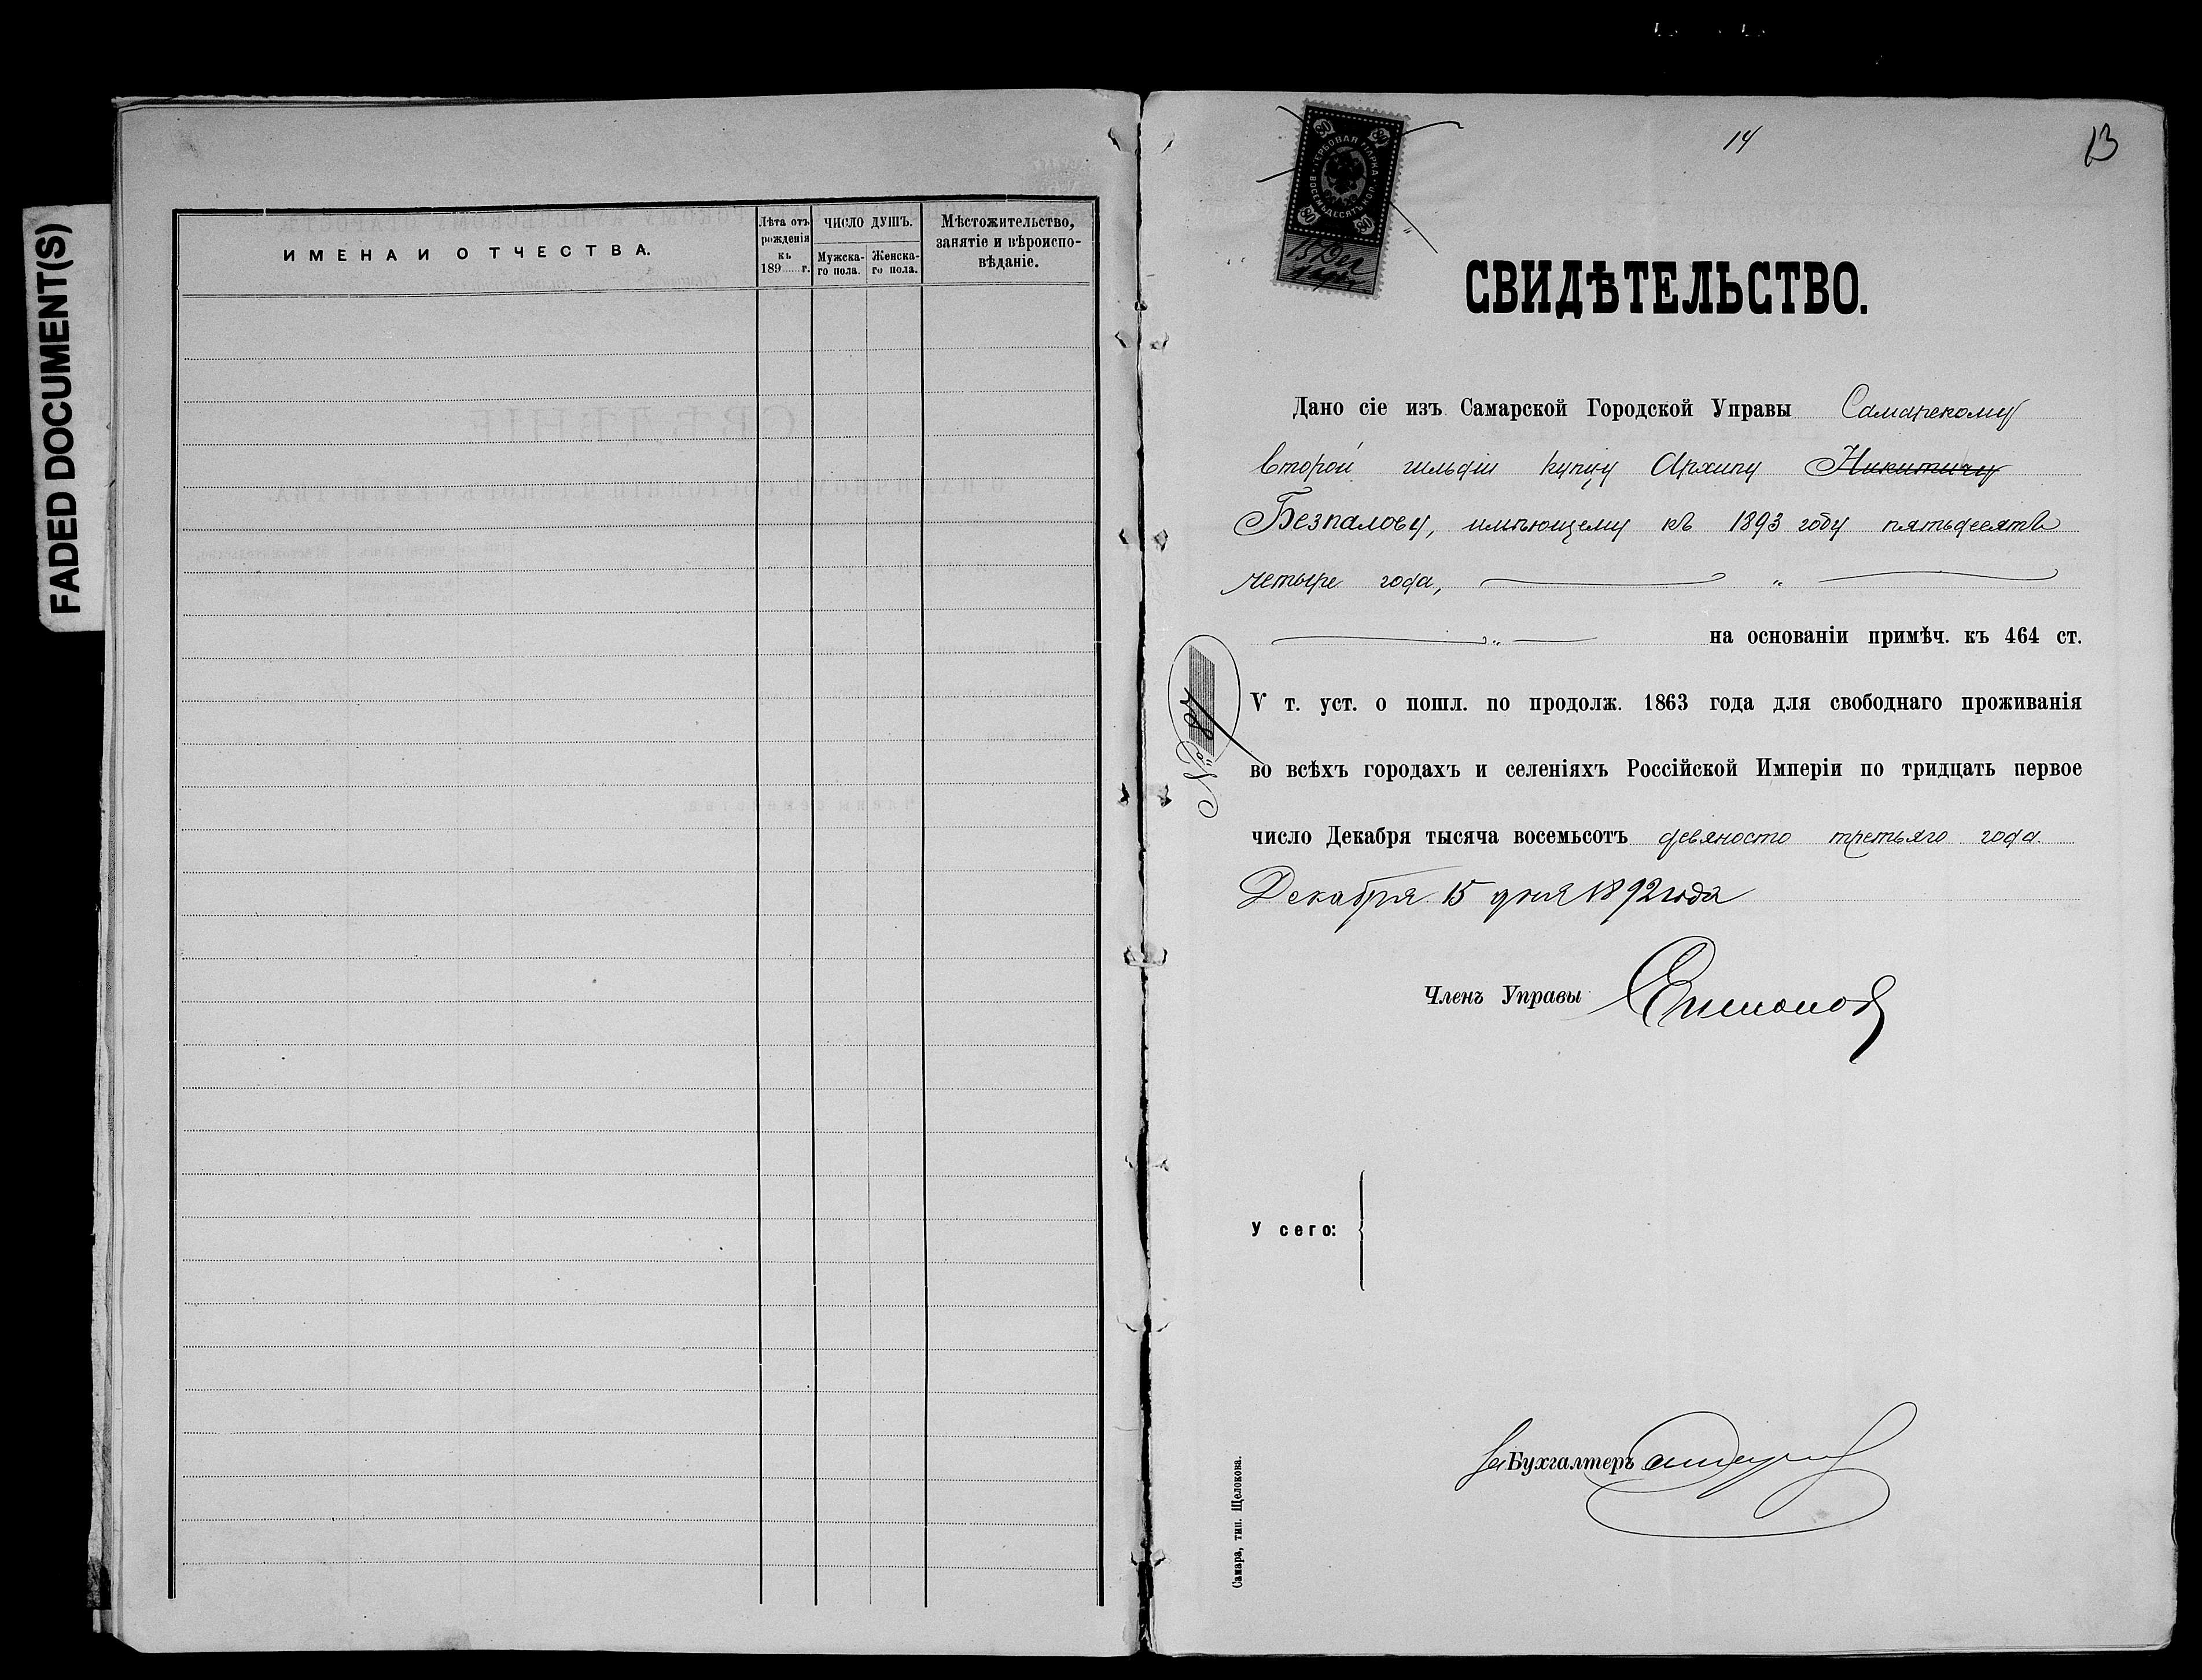 FADED DOCUMENT(S)
ИМЕНА И ОТЧЕСТВА.
Лѣта отъ
рожденія
къ
189 г.
ЧИСЛО ДУШЪ.
Мужска-
го пола.
Женска-
го пола.
Мѣстожительство,
занятіе и вѣроиспо-
вѣданіе.
14
13
ГЕРБОВАЯ МАРКА
ВОСЕМЬДЕСЯТЪ КОП.
80 80
80 80
15 Дек
СВИДѢТЕЛЬСТВО.
Дано сіе изъ Самарской Городской Управы Самарскому
второй гильдіи купцу Архипу Никитичу
Безпалову, имѣющему къ 1893 году пятьдесятъ
четыре года,
на основаніи примѣч. къ 464 ст.
V т. уст. о пошл. по продолж. 1863 года для свободнаго проживанія
во всѣхъ городахъ и селеніяхъ Россійской Имперіи по тридцать первое
число Декабря тысяча восемьсотъ девяносто третьяго года.
Декабря 15 дня 1892 года
№ 87
Членъ Управы
У сего:
За Бухгалтеръ
Самара, тип. Щелокова.